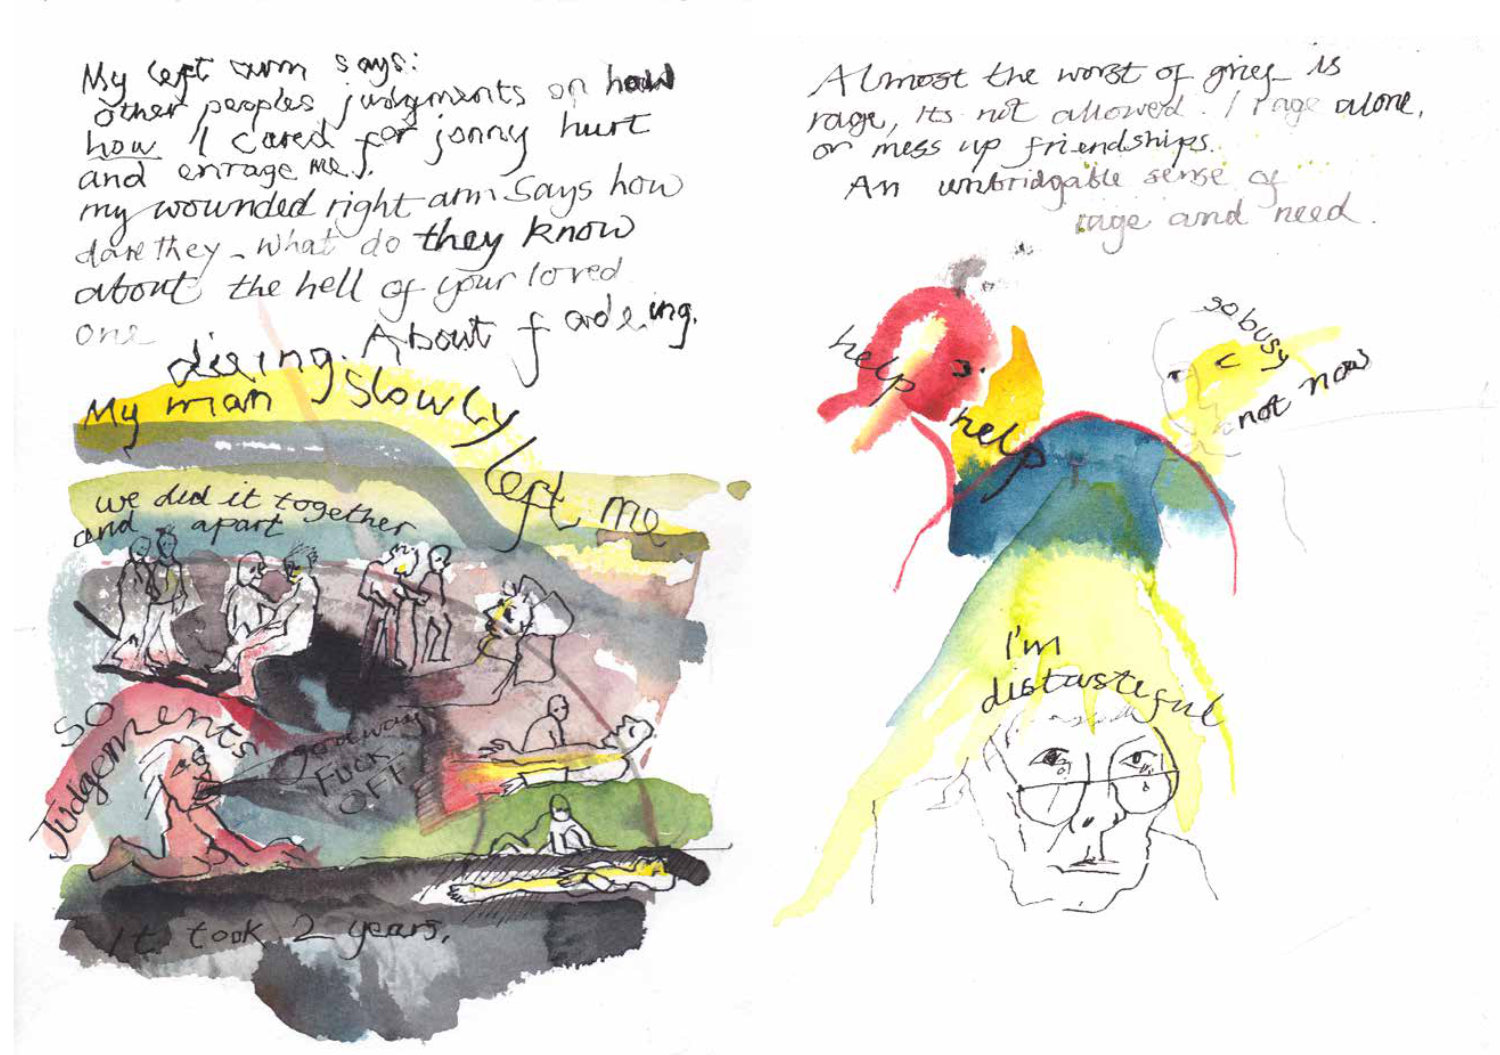 My left arm says:
other peoples judgments on how
how I cared for jonny hurt
and enrage me.
my wounded right arm says how
dare they - what do they know
about the hell of your loved
one
dieing. About fadeing.
My man slowly left me
we did it together
and apart
so
Judgements
go away
FUCK
OFF
It took 2 years.
Almost the worst of grief is
rage, its not allowed. I rage alone,
or mess up friendships.
An unbridgable sense of
rage and need.
help help
so busy
not now
I'm
distasteful